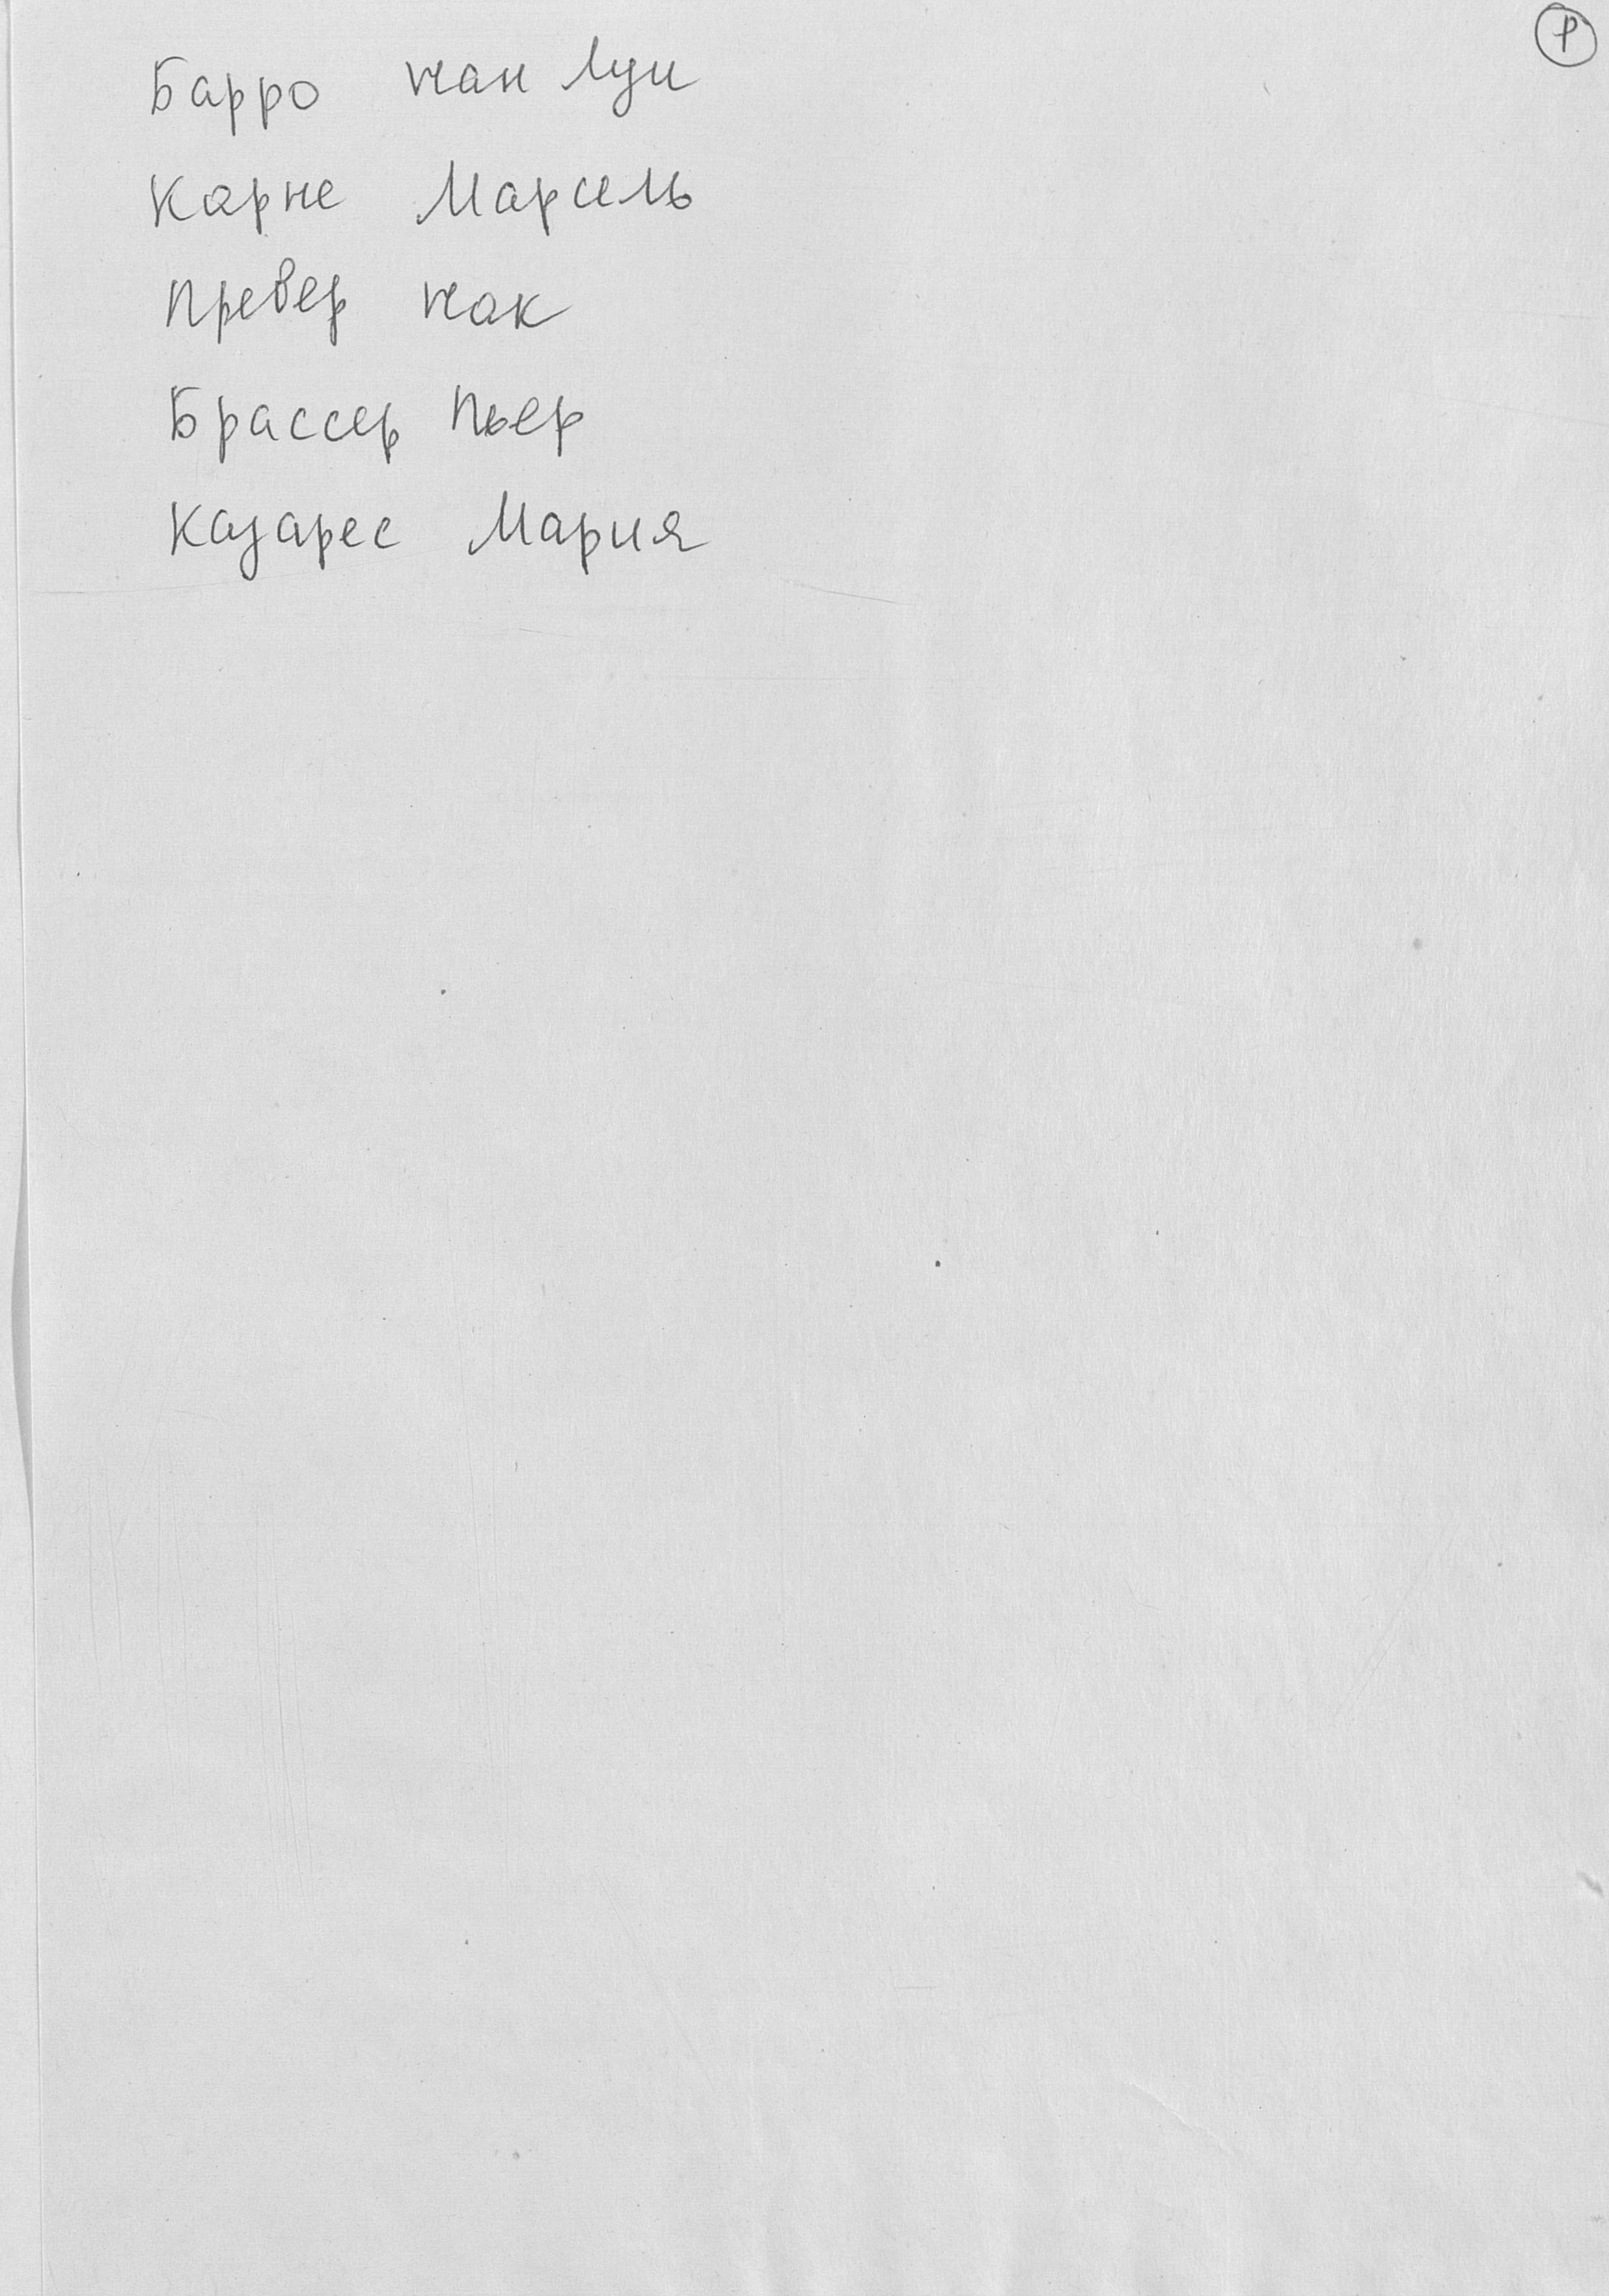 Р
Барро Жан Луи
Карне Марсель
Превер Жак
Брассер Пьер
Казарес Мария